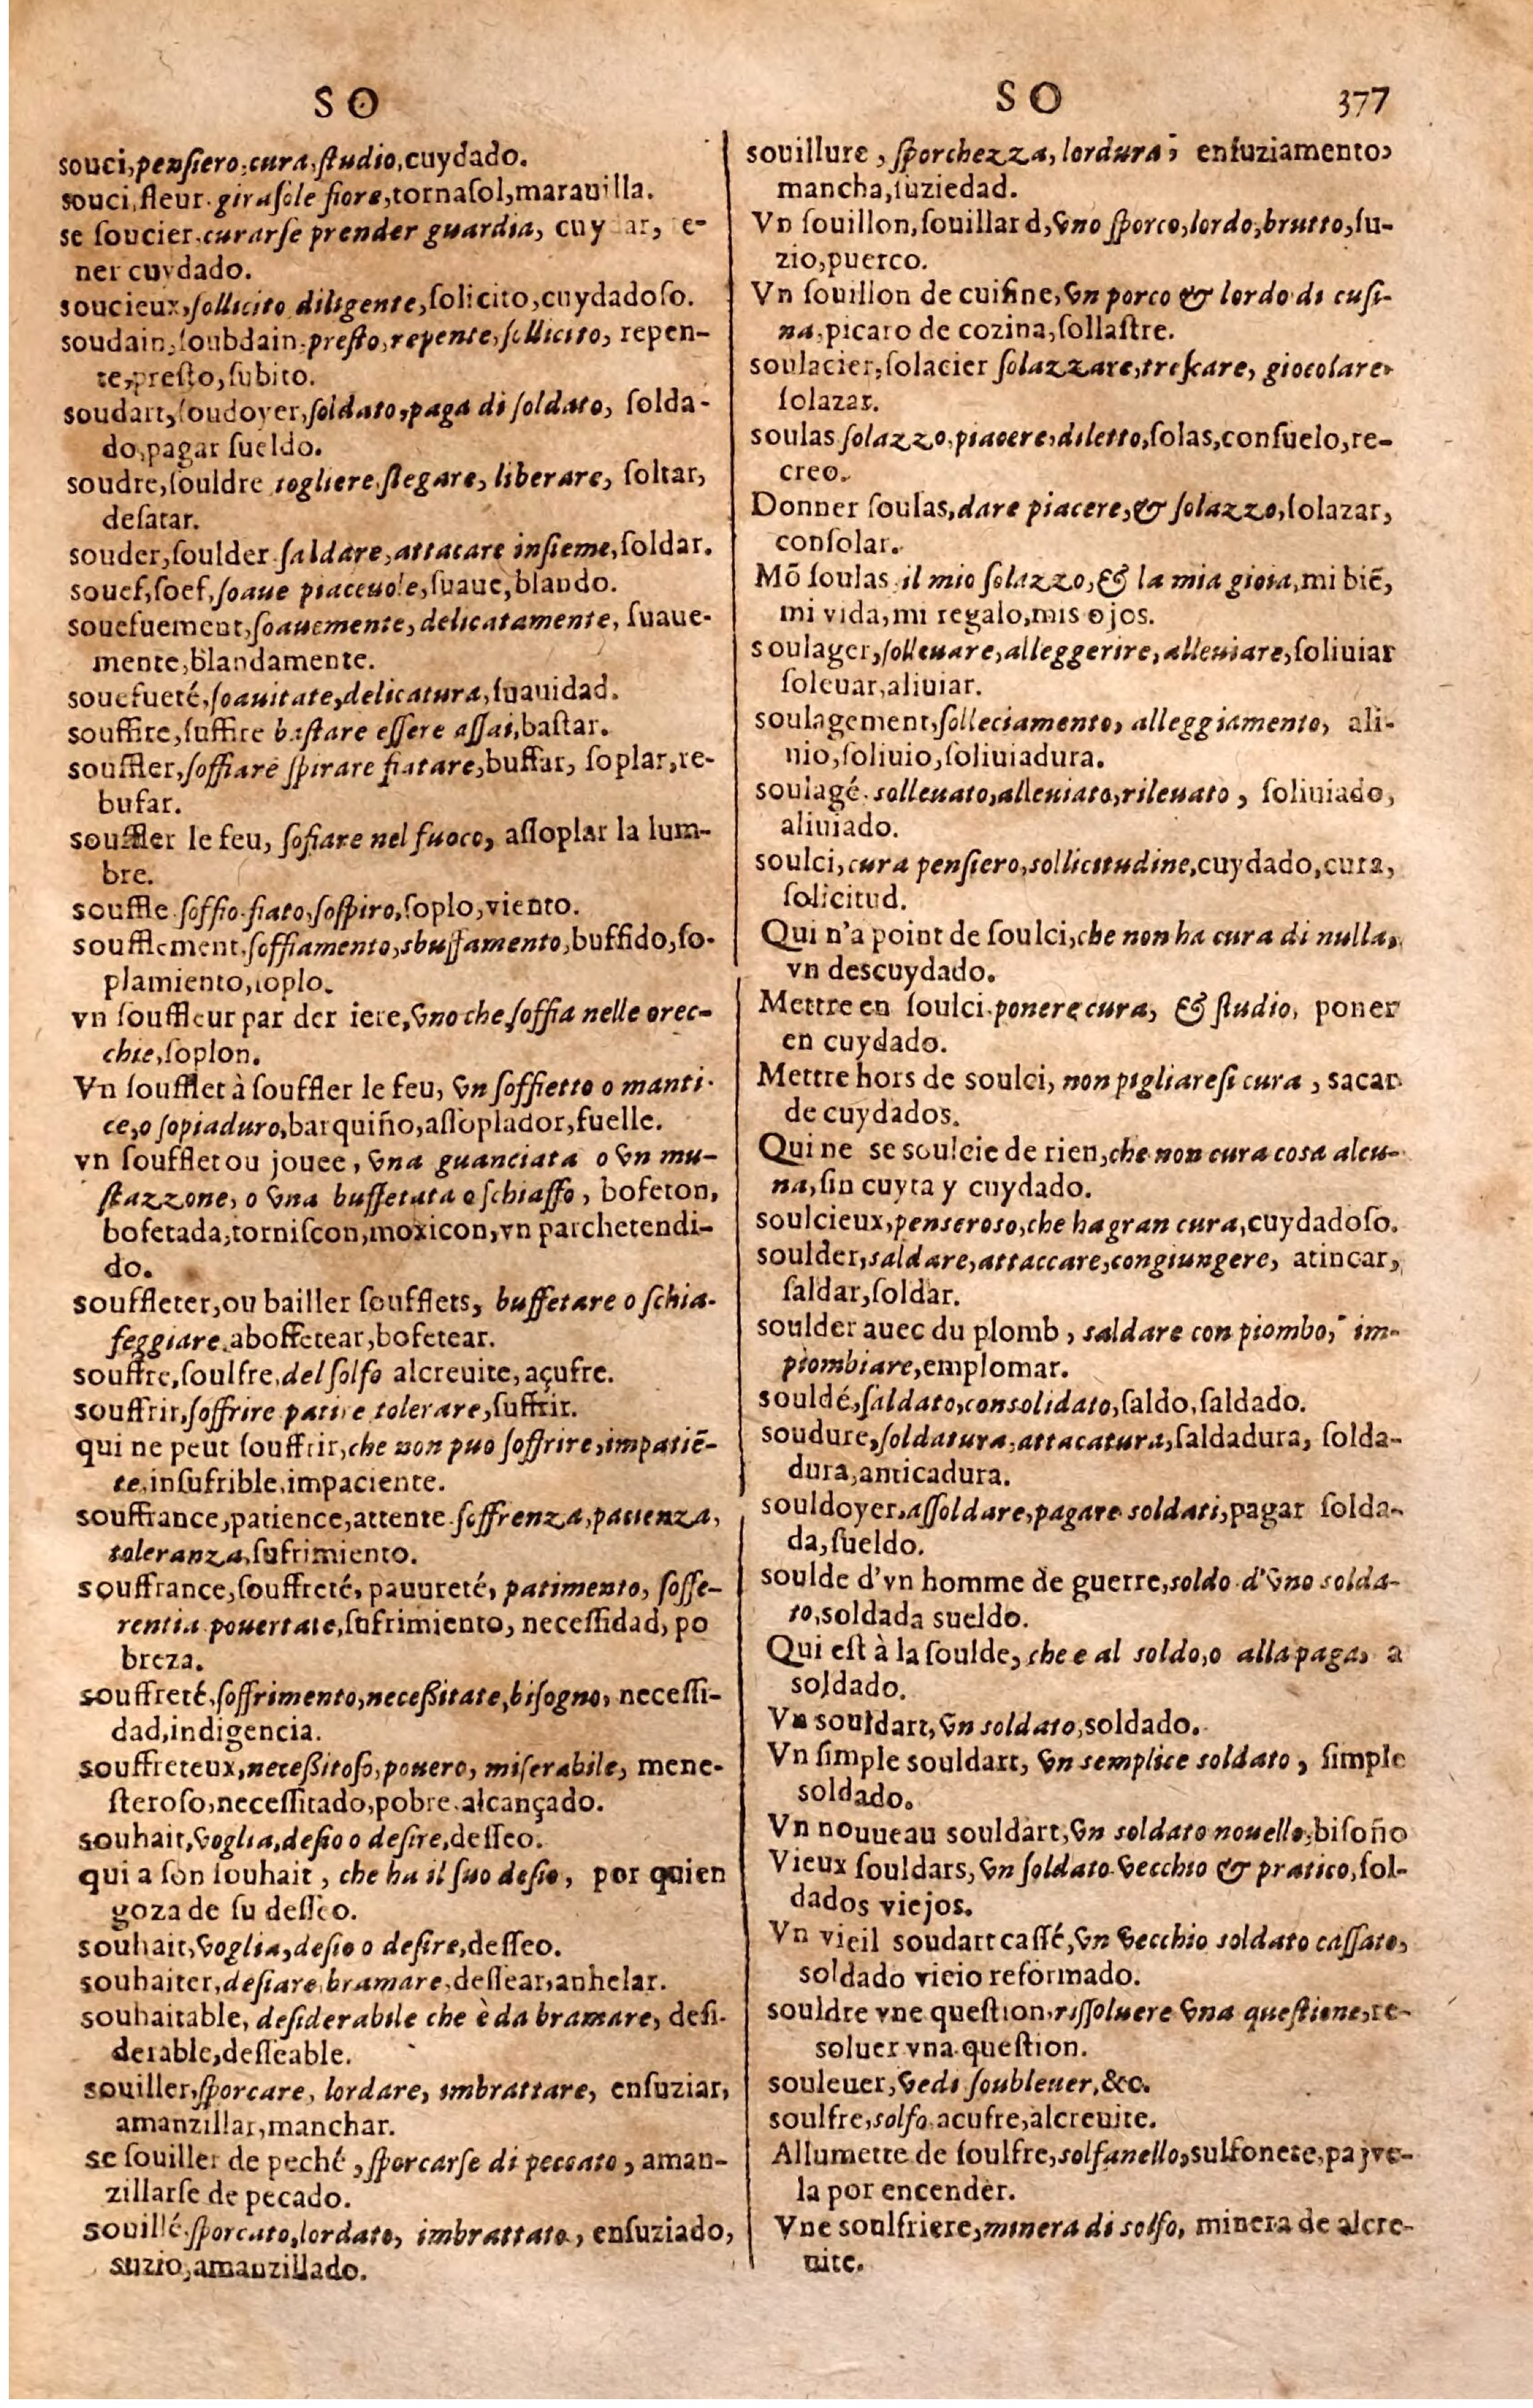 SO
souci,pensiero,cura,studio,cuydado.
souci,fleur.girasole fiore,tornasol,marauilla.
se soucier.curarse prender guardia, cuydar, te-
ner cuydado.
soucieux,sollicito diligente,solicito,cuydadoso.
soudain,soubdain.presto,repente,sollicito, repen-
te,presto,subito.
soudart,soudoyer,soldato,paga di soldato, solda-
do,pagar sueldo.
soudre,souldre togliere,slegare, liberare, soltar,
desatar.
souder,soulder saldare,attacare insieme,soldar.
souef,soef,soaue piaceuole,suaue,blando.
souefuement,soauemente,delicatamente, suaue-
mente,blandamente.
souefueté,soauitate,delicatura,suauidad.
souffire,suffire bastare essere assai,bastar.
souffler,soffiare spirare fiatare,buffar, soplar,re-
bufar.
souffler le feu, sofiare nel fuoco, assoplar la lum-
bre.
souffle.soffio.fiato,sospiro,soplo,viento.
soufflement,soffiamento,sbuffamento,buffido,so-
plamiento,soplo.
vn souffleur par der iere,vno che soffia nelle orec-
chie,soplon.
Vn soufflet à souffler le feu, vn soffietto o manti-
ce,o sopiaduro,barquiño,assoplador,fuelle.
vn soufflet ou jouee, vna guanciata o vn mu-
stazzone, o vna buffetata o schiaffo, bofeton,
bofetada,torniscon,moxicon,vn parchetendi-
do.
souffleter,ou bailler soufflets, buffetare o schia-
feggiare,aboffetear,bofetear.
souffre,soulfre,del solfo alcreuite,açufre.
souffrir,soffrire patire tolerare,suffrir.
qui ne peut souffrir,che non puo soffrire,impatiē-
te,insufrible,impaciente.
souffrance,patience,attente.soffrenza,pacienza,
toleranza,sufrimiento.
souffrance,souffreté, pauureté, patimento, soffe-
rentia pouertate,sufrimiento, necessidad, po
breza.
souffreté,soffrimento,necessitate,bisogno, necessi-
dad,indigencia.
souffreteux,necessitoso,pouero, miserabile, mene-
steroso,necessitado,pobre.alcançado.
souhait,voglia,desio o desire,desseo.
qui a son souhait, che ha il suo desio, por quien
goza de su desseo.
souhait,voglia,desio o desire,desseo.
souhaiter,desiare,bramare,dessear,anhelar.
souhaitable, desiderabile che è da bramare, desi-
derable,desseable.
souiller,sporcare, lordare, imbrattare, ensuziar,
amanzillar,manchar.
se souiller de peché, sporcarse di peccato, aman-
zillarse de pecado.
souillé.sporcato,lordato, imbrattato, ensuziado,
suzio,amanzillado.
SO 377
souillure, sporchezza, lordura, ensuziamento,
mancha,suziedad.
Vn souillon,souillard,vno sporco,lordo,brutto,su-
zio,puerco.
Vn souillon de cuisine,vn porco & lordo di cusi-
na,picaro de cozina,sollastre.
soulacier,solacier solazzare,trescare, giocolare,
solazar.
soulas solazzo,piacere,diletto,solas,consuelo,re-
creo.
Donner soulas,dare piacere,& solazzo,solazar,
consolar.
Mō soulas.il mio solazzo,& la mia gioia,mi biē,
mi vida,mi regalo,mis ojos.
soulager,solleuare,alleggerire,alleuiare,soliuiar
soleuar,aliuiar.
soulagement,solleciamento, alleggiamento, ali-
uio,soliuio,soliuiadura.
soulagé.solleuato,alleuiato,rileuato, soliuiado,
aliuiado.
soulci,cura pensiero,sollicitudine,cuydado,cura,
solicitud.
Qui n'a point de soulci,che non ha cura di nulla,
vn descuydado.
Mettre en soulci.ponere cura, & studio, poner
en cuydado.
Mettre hors de soulci, non pigliaresi cura, sacar
de cuydados.
Qui ne se soulcie de rien,che non cura cosa alcu-
na,sin cuyta y cuydado.
soulcieux,penseroso,che ha gran cura,cuydadoso.
soulder,saldare,attaccare,congiungere, atincar,
saldar,soldar.
soulder auec du plomb, saldare con piombo, im-
piombiare,emplomar.
souldé,saldato,consolidato,saldo,saldado.
soudure,soldatura,attacatura,saldadura, solda-
dura,anticadura.
souldoyer,assoldare,pagare soldati,pagar solda-
da,sueldo.
soulde d'vn homme de guerre,soldo d'vno solda-
to,soldada sueldo.
Qui est à la soulde, che e al soldo,o alla paga, a
soldado.
Vn souldart,vn soldato,soldado.
Vn simple souldart, vn semplice soldato, simple
soldado.
Vn nouueau souldart,vn soldato nouello,bisoño
Vieux souldars, vn soldato vecchio & pratico,sol-
dados viejos.
Vn vieil soudart cassé,vn vecchio soldato cassato,
soldado vicio reformado.
souldre vne question,rissoluere vna questione,re-
soluer vna question.
souleuer,vedi soubleuer,&c.
soulfre,solfo.acufre,alcreuite.
Allumette de soulfre,solfanello,sulfonete,pajve-
la por encender.
Vne soulfriere,minera di solfo, minera de alcre-
uite.